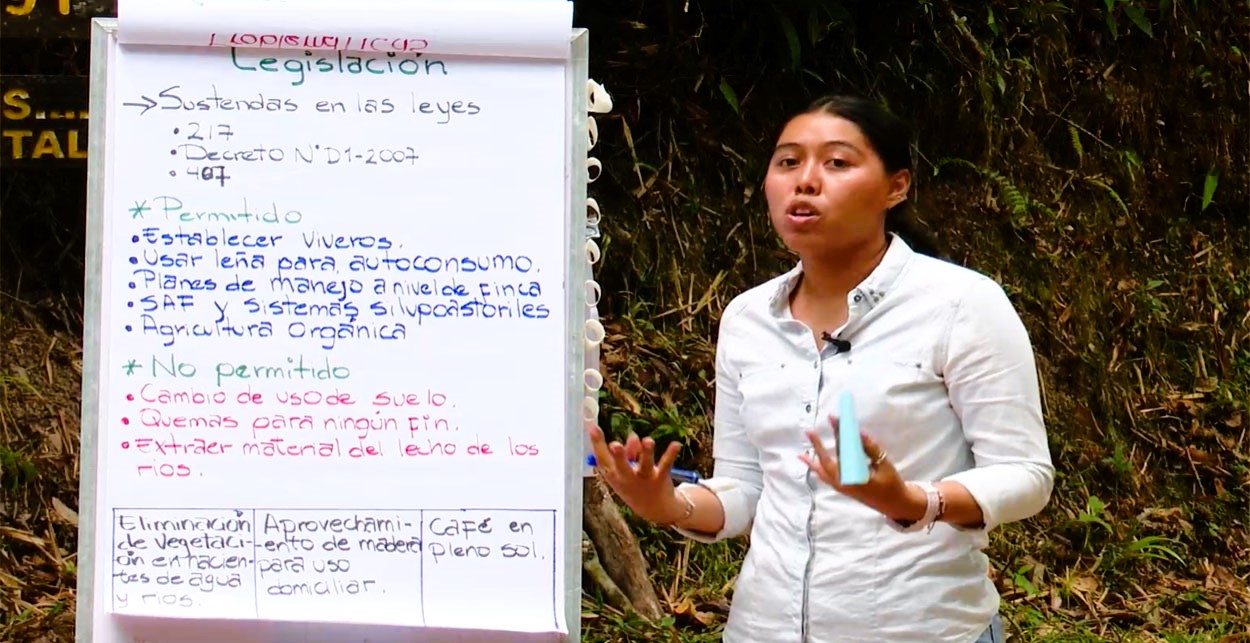 TAL
Legislación
→Sustendas en las leyes
• 217
• Decreto N°D1-2007
• 407
* Permitido
• Establecer viveros.
• Usar leña para autoconsumo.
• Planes de manejo a nivel de finca
• SAF y sistemas silvopastoriles
• Agricultura Orgánica
* No permitido
• Cambio de uso de suelo.
• Quemas para ningún fin.
• Extraer material del lecho de los
rios.
Eliminación
de vegetaci-
ón en nacien-
tes de agua
y rios.
Aprovechami-
ento de madera
para uso
domiciliar.
Café en
pleno sol.